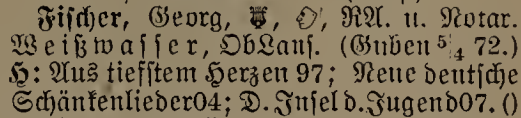 Fischer, Georg, RA. u. Notar.
Weißwasser, ObLaus. (Guben 5/4 72.)
H: Aus tiefstem Herzen 97; Neue deutsche
Schänkenlieder04; D. Insel d. Jugend07. ()